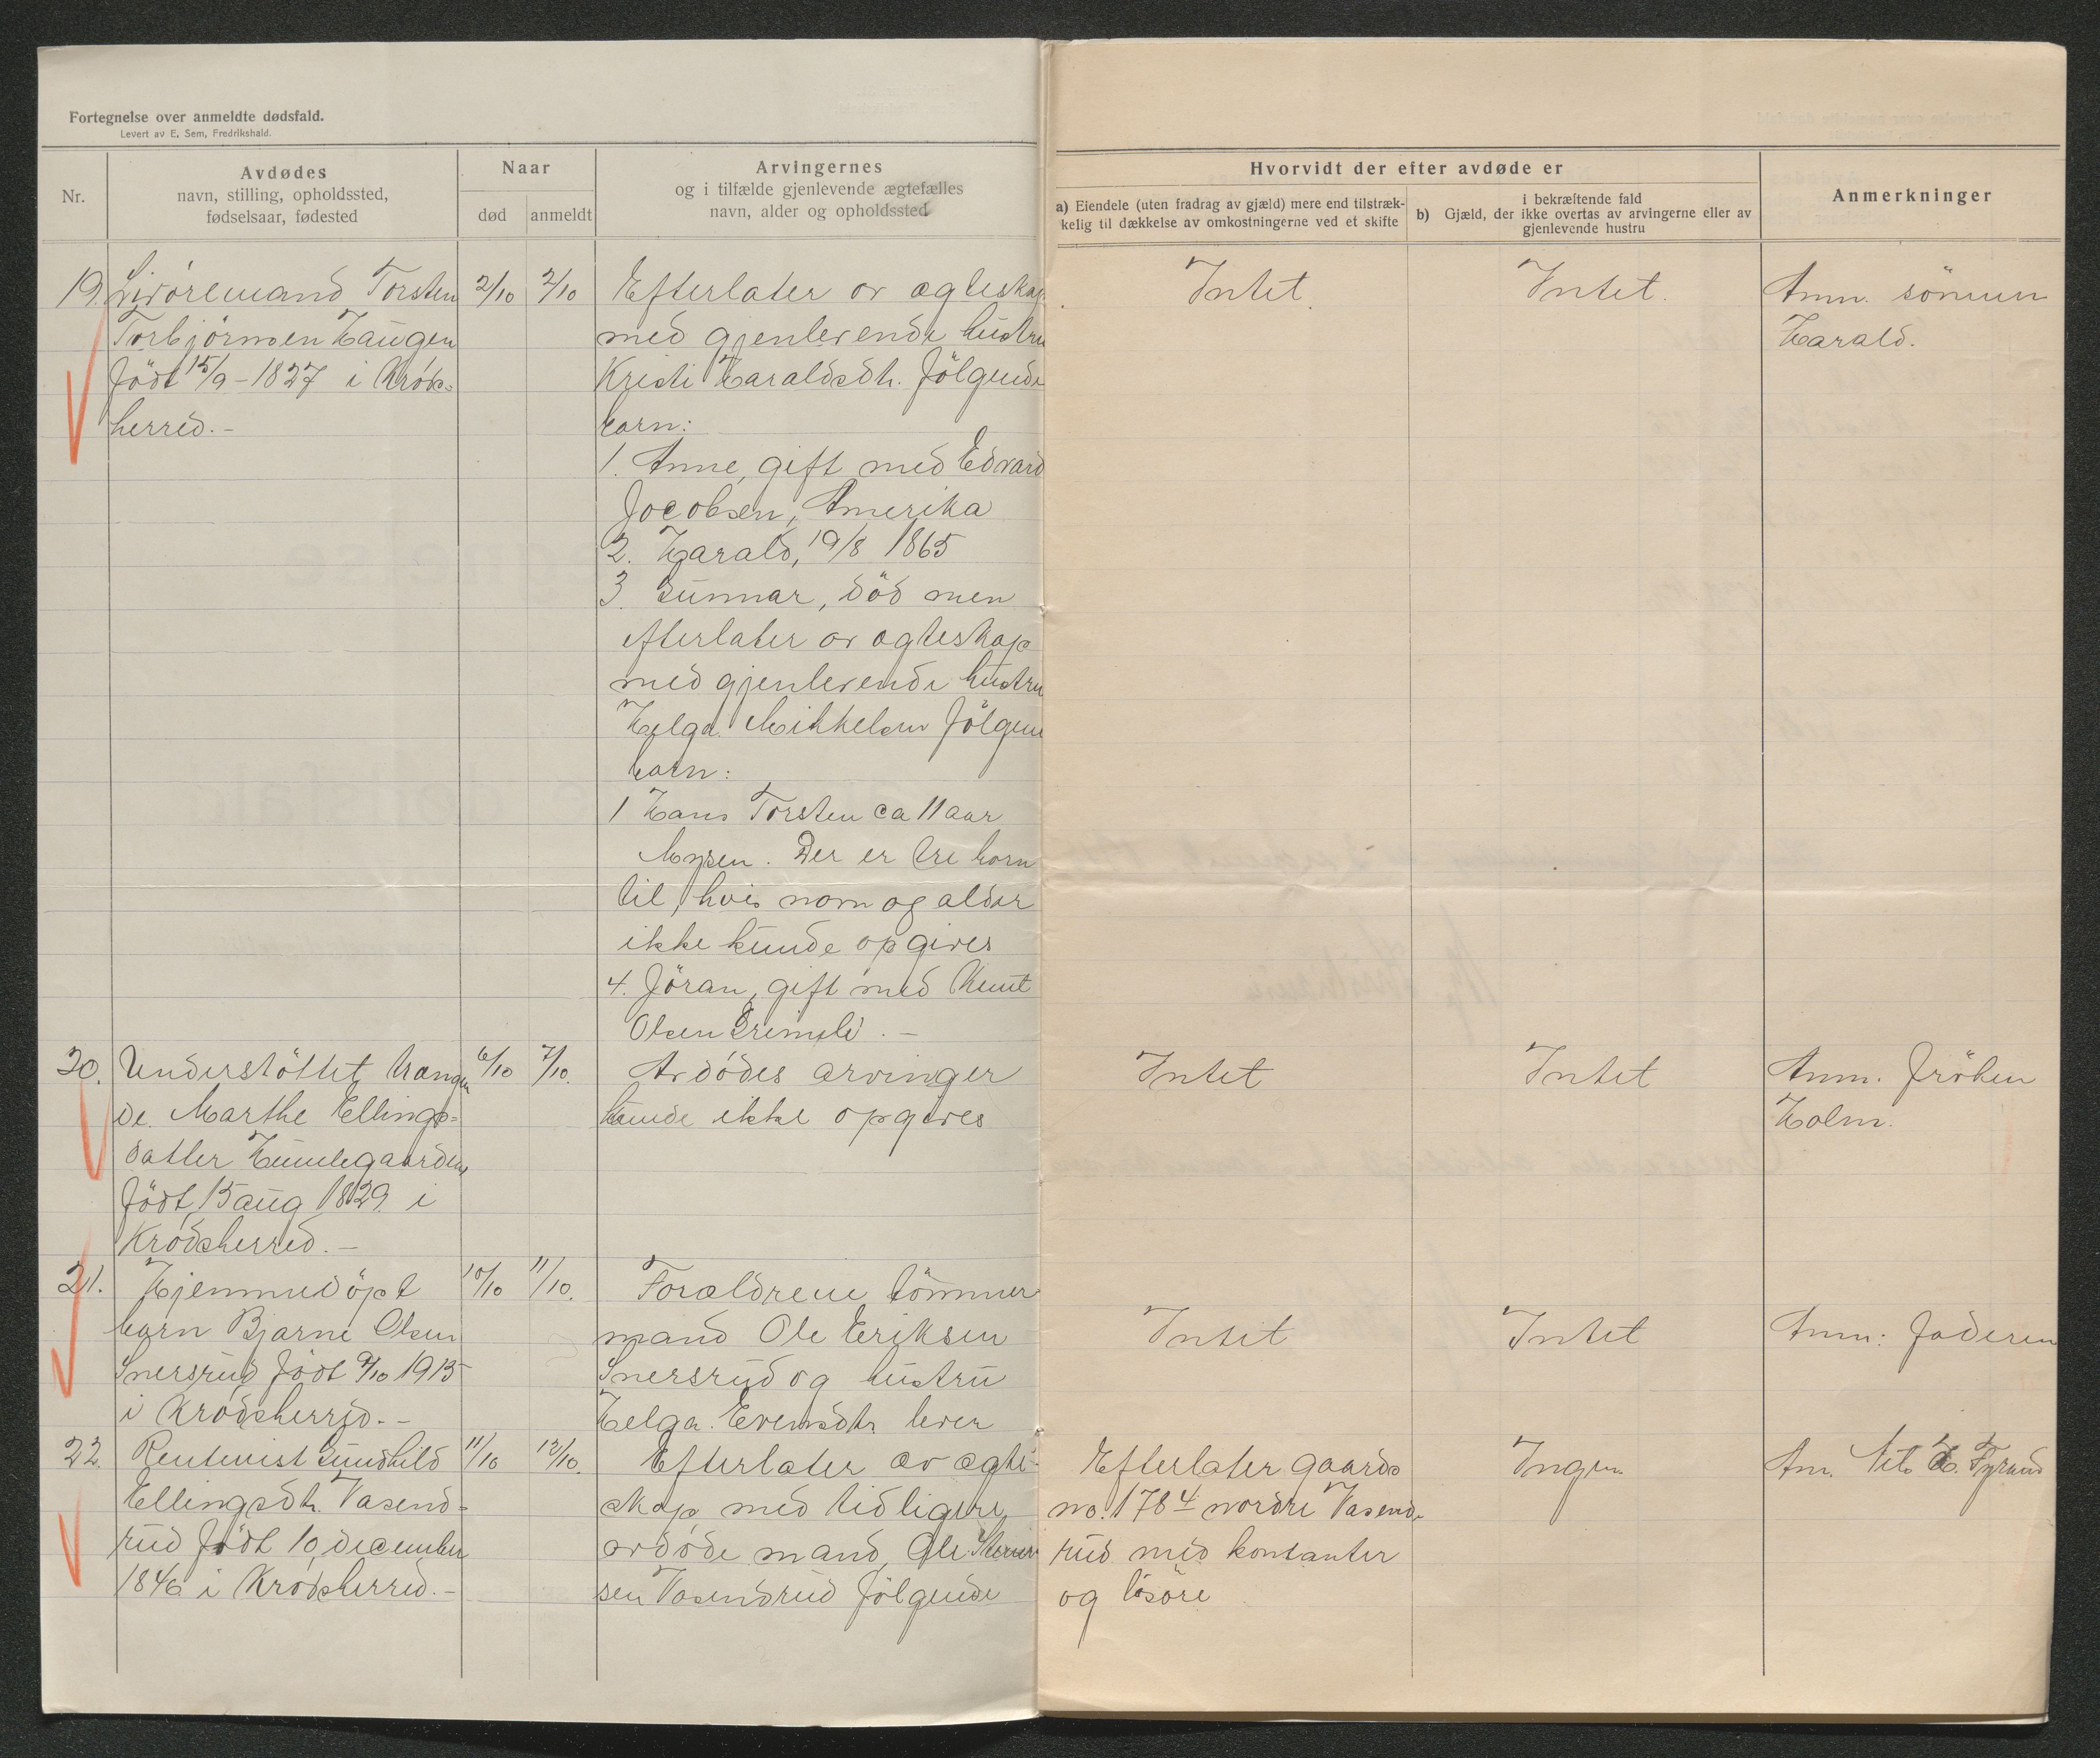 Fortegnelse over anmeldte dødsfald.
Levert av E. Sem, Fredrikshald.
Nr.
Avdødes
navn, stilling, opholdssted,
fødselsaar, fødested
Naar
død
anmeldt
Arvingernes
og i tilfælde gjenlevende ægtefælles
navn, alder og opholdssted
Hvorvidt der efter avdøde er
a) Eiendele (uten fradrag av gjæld) mere end tilstræk-
kelig til dækkelse av omkostningerne ved et skifte
i bekræftende fald
b) Gjæld, der ikke overtas av arvingerne eller av
gjenlevende hustru
Anmerkninger
19. Livøremand Torsten
Torbjörnsen Haugen
födt 15/9-1827 i Kröds-
herred.-
2/10
2/10
Efterlater av ægteskap
med gjenlevende hustru
Kristi Haraldsdtr. følgende
barn:
1. Anne, gift med Edvard
Jocobsen, Amerika
2. Harald, 19/8 1865
3. Gunnar, död men
efterlater av ægteskap
med gjenlevende hustru
Helga Mikkelsen fölgen
barn:
1 Hans Torsten ca 11 aar
Mysen. Der er tre barn
til, hvis navn og alder
ikke kunde opgives
4. Jöran, gift med Knut
Olsen Grimeli.-
Intet
Intet.
Anm. sönnen
Harald.
20. Understöttet trængen
de. Marthe Ellings-
datter Hunlegaarden
födt 15 aug 1829 i
Krödsherred.-
6/10
7/10.
Avdödes arvinger
kunde ikke opgives
Intet
Intet
Anm. fröken
Holm.
21. Hjemmedöpt
barn Bjarne Olsen
Snersrud födt 9/10 1915
i Krödsherred.-
10/10
11/10.
Forældrene tömmer
mand Ole Eriksen
Snersrud og hustru
Helga Evensdtr lever
Intet
Intet
Anm: faderen
22. Rentenist Gundhild
Ellingsdtr. Vasend-
rud födt 10 december
1846 i Krödsherred.-
11/10
12/10.
Efterlater av ægte-
skap med tidligere
avdöde mand, Ole
sen Vasendrud fölgende
Efterlater gaards
no. 178 4 nordre Vasend-
rud med kontanter
og lösöre
Ingen.
Am. Nils H. Fyrand